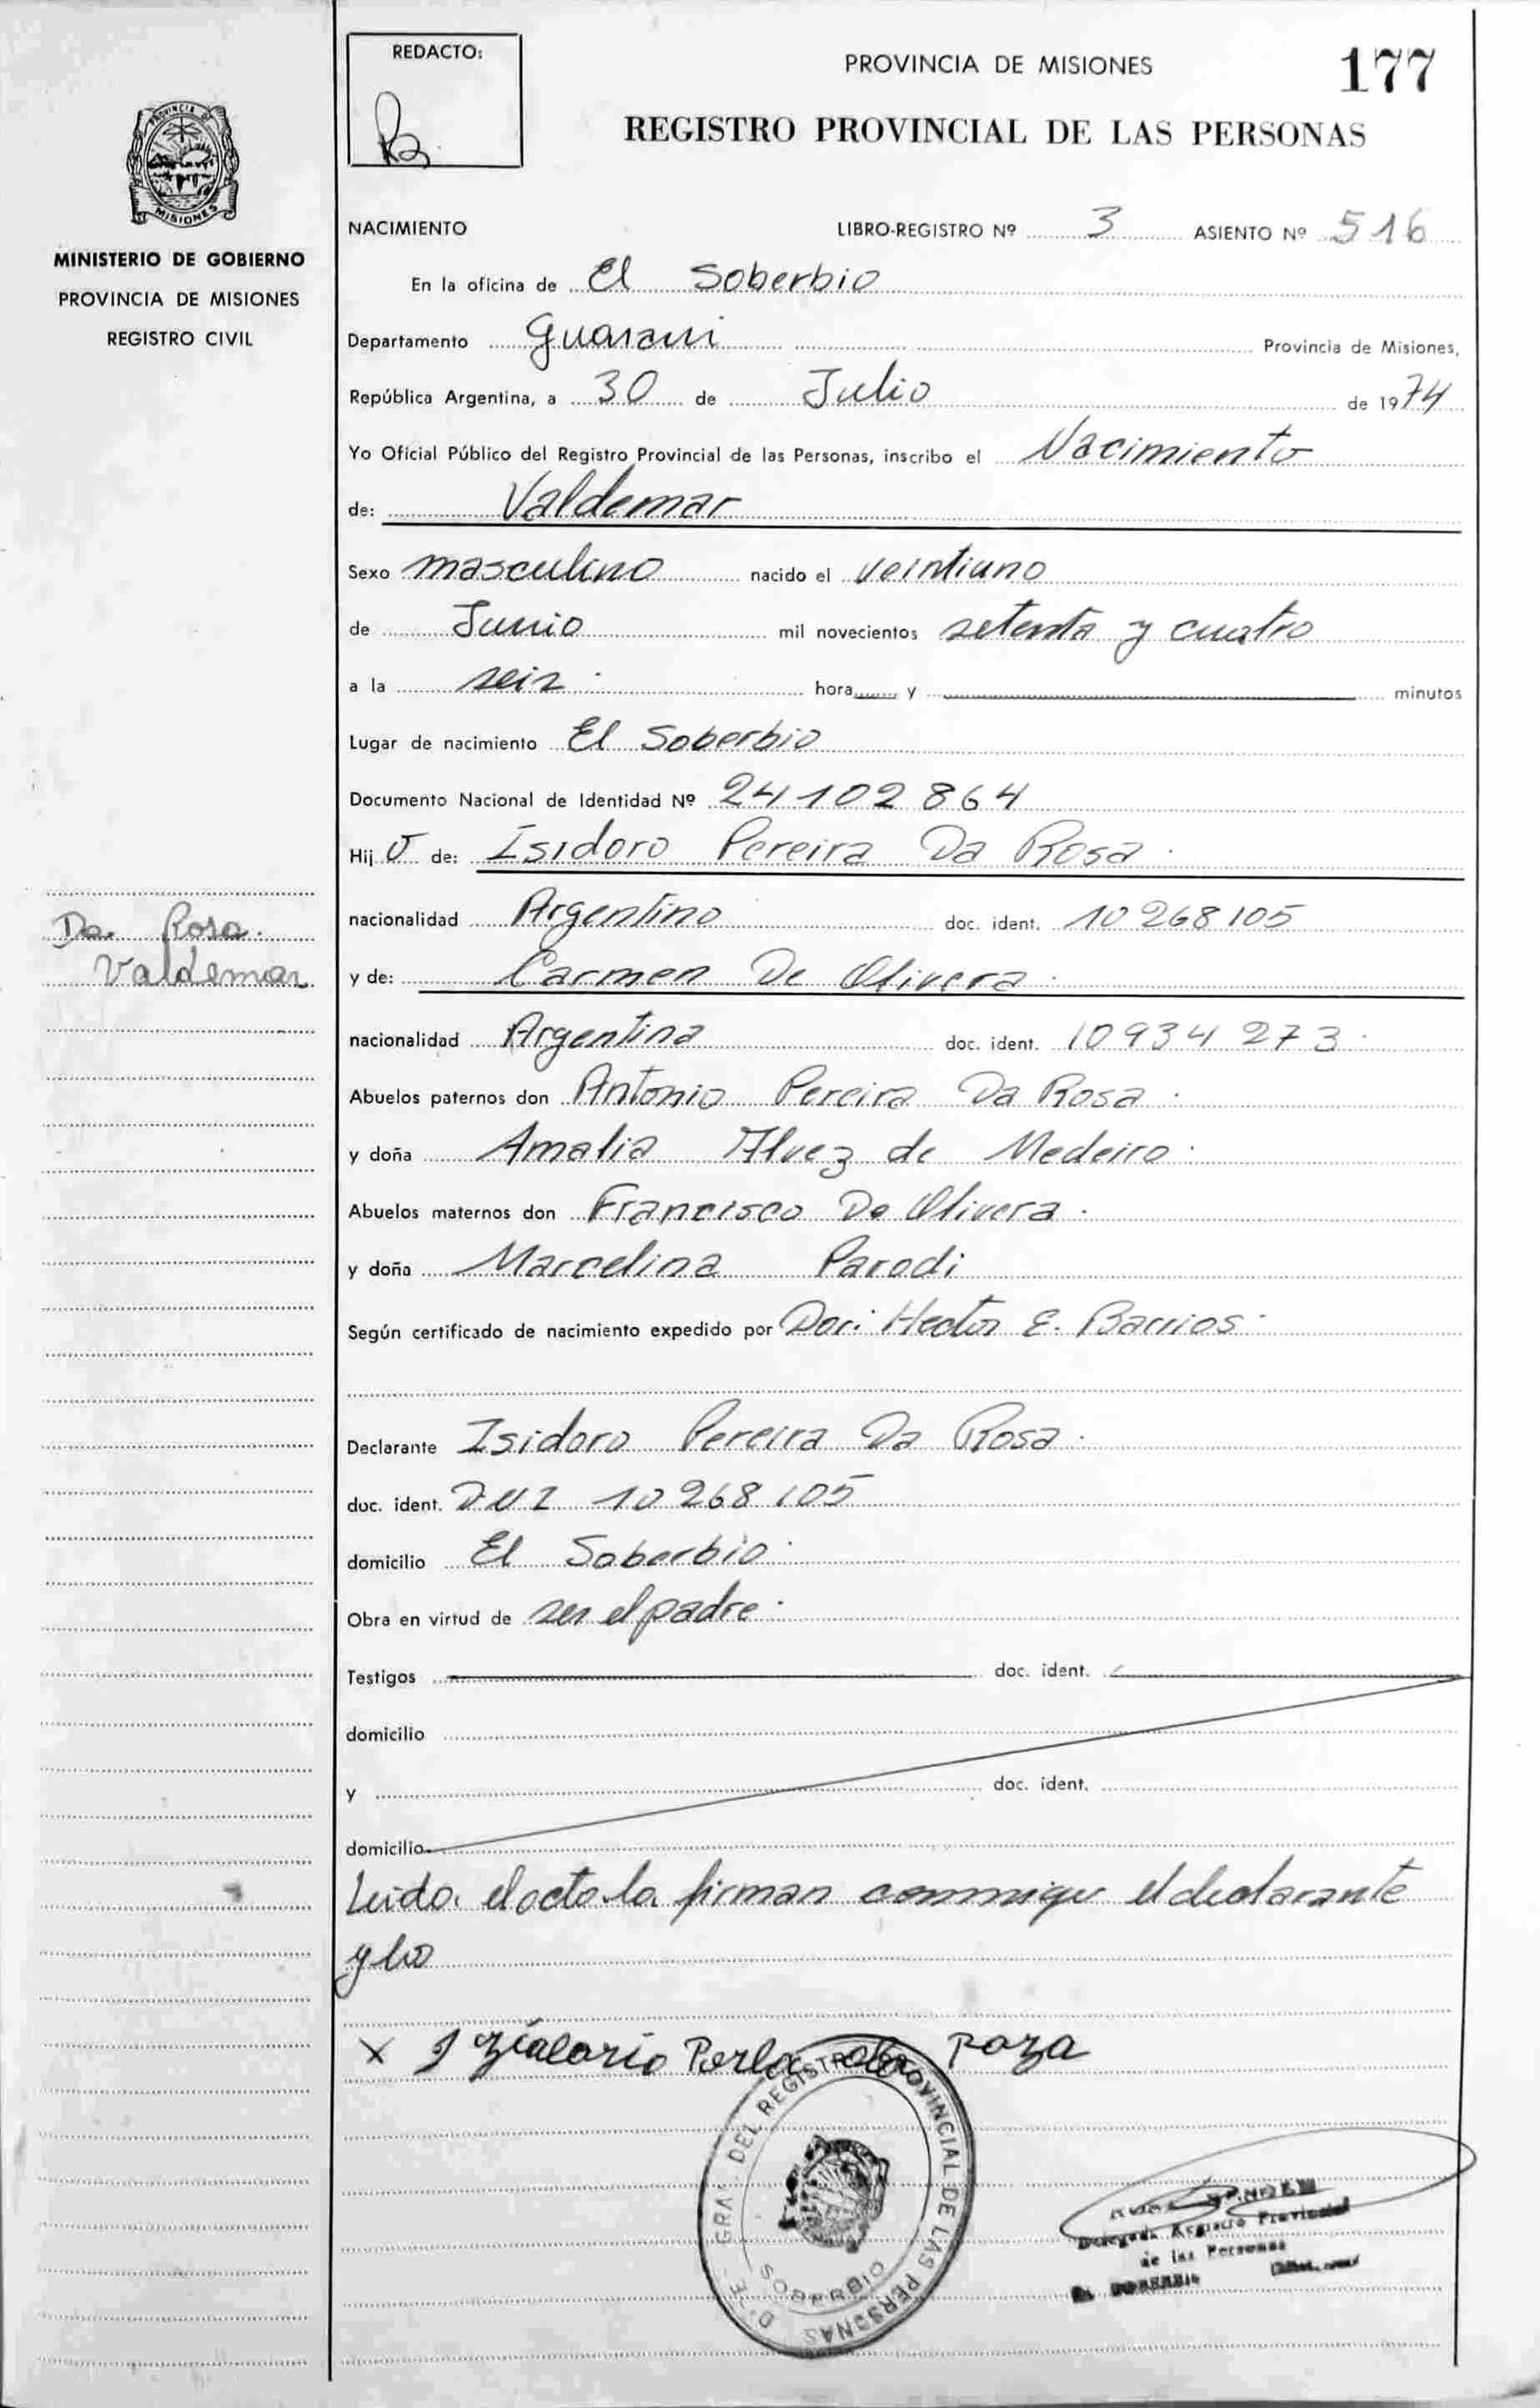 REDACTO:
PROVINCIA DE MISIONES
177
REGISTRO PROVINCIAL DE LAS PERSONAS
PROVINCIA DE
MISIONES
MINISTERIO DE GOBIERNO
PROVINCIA DE MISIONES
REGISTRO CIVIL
NACIMIENTO LIBRO-REGISTRO Nº 3 ASIENTO Nº 516
En la oficina de El Soberbio
Departamento Guarani Provincia de Misiones,
República Argentina, a 30 de Julio de 1974
Yo Oficial Público del Registro Provincial de las Personas, inscribo el Nacimiento
de: Valdemar
Sexo masculino nacido el veintiuno
de Junio mil novecientos setenta y cuatro
a la seis hora y minutos
Lugar de nacimiento El Soberbio
Documento Nacional de Identidad Nº 24102864
Hijo de: Isidoro Pereira Da Rosa.
nacionalidad Argentino doc. ident. 10268105
Da Rosa.
Valdemar
y de: Carmen De Olivera.
nacionalidad Argentina doc. ident. 10934273.
Abuelos paternos don Antonio Pereira Da Rosa.
y doña Amalia Alvez de Medeiro.
Abuelos maternos don Francisco De Olivera.
y doña Marcelina Parodi
Según certificado de nacimiento expedido por Hector E. Barrios.
Declarante Isidoro Pereira Da Rosa.
doc. ident. 10268105
domicilio El Soberbio.
Obra en virtud de ser el padre.
Testigos doc. ident.
domicilio
y doc. ident.
domicilio
Leido el acta la firman conmigo el declarante
y la
X da roza
GRAL. DEL REGISTRO PROVINCIAL DE LAS PERSONAS
SOBERBIO
Delegada Registro Provincial
de las Personas